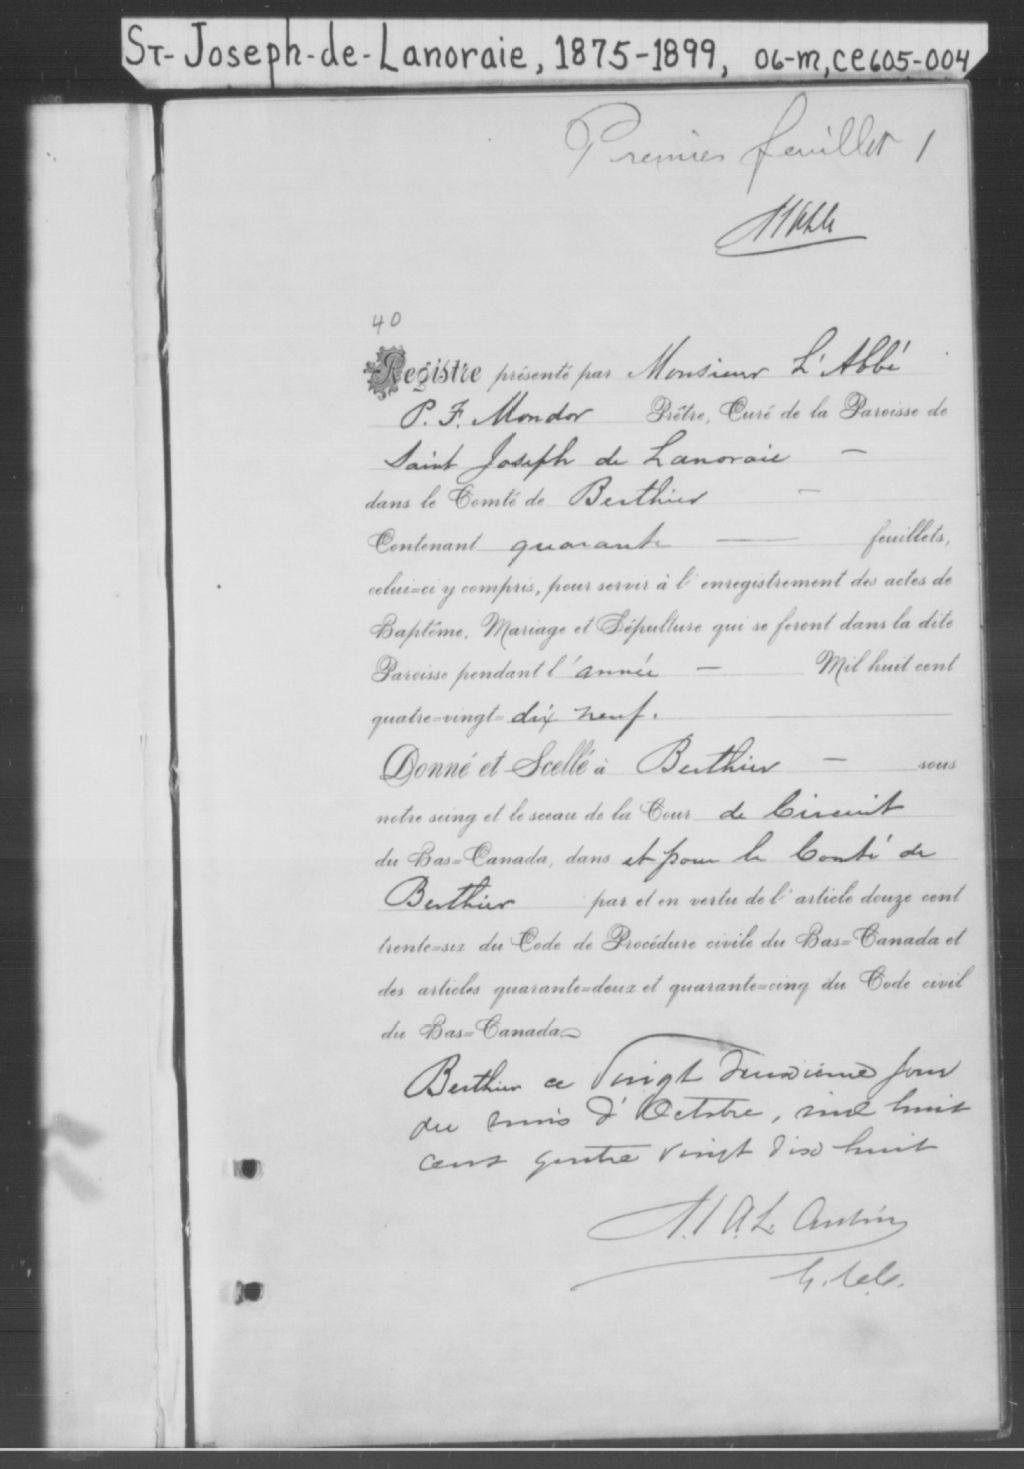 St-Joseph-de-Lanoraie, 1875-1899, 06-M, CE605-004
Premier feuillet 1
40
Registre présenté par Monsieur L'Abbé
P. F. Mondor Prêtre, Curé de la Paroisse de
Saint Joseph de Lanoraie —
dans le Comté de Berthier —
Contenant quarante — feuillets,
celui=ci y compris, pour servir à l'enregistrement des actes de
Baptême, Mariage et Sépulture qui se feront dans la dite
Paroisse pendant l'année — Mil huit cent
quatre=vingt= dix neuf.
Donné et Scellé à Berthier — sous
notre seing et le sceau de la Cour de Circuit
du Bas=Canada, dans et pour le Comté de
Berthier par et en vertu de l'article douze cent
trente=six du Code de Procédure civile du Bas=Canada et
des articles quarante=deux et quarante=cinq du Code civil
du Bas=Canada
Berthier ce Vingt deuxième jour
du mois d'Octobre, mil huit
cent quatre vingt dix huit
A. L. Aubin